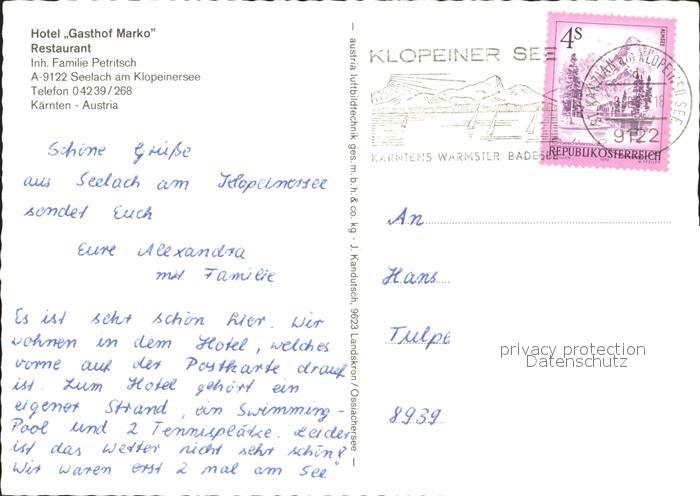 Hotel „Gasthof Marko"
Restaurant
Inh. Familie Petritsch
A-9122 Seelach am Klopeinersee
Telefon 0 42 39 / 268
Kärnten - Austria
Schöne Grüße
aus Seelach am Klopeinersee
sendet Euch
Eure Alexandra
mit Familie
Es ist sehr schön hier. Wir
wohnen in dem Hotel, welches
vorne auf der Postkarte drauf
ist. Zum Hotel gehört ein
eigener Strand, ein Swimming-
Pool und 2 Tennisplätze. Leider
ist das Wetter nicht sehr schön!
Wir waren erst 2 mal am See
— austria luftbildtechnik ges. m. b. h. & co. kg - J. Kandutsch, 9623 Landskron / Ossiachersee —
KLOPEINER SEE
KÄRNTENS WÄRMSTER BADESEE
4S
ALMSEE
REPUBLIK ÖSTERREICH
ST. KANZIAN am KLOPEINER SEE
9122
An
Hans
Tulpe
8939
privacy protection
Datenschutz